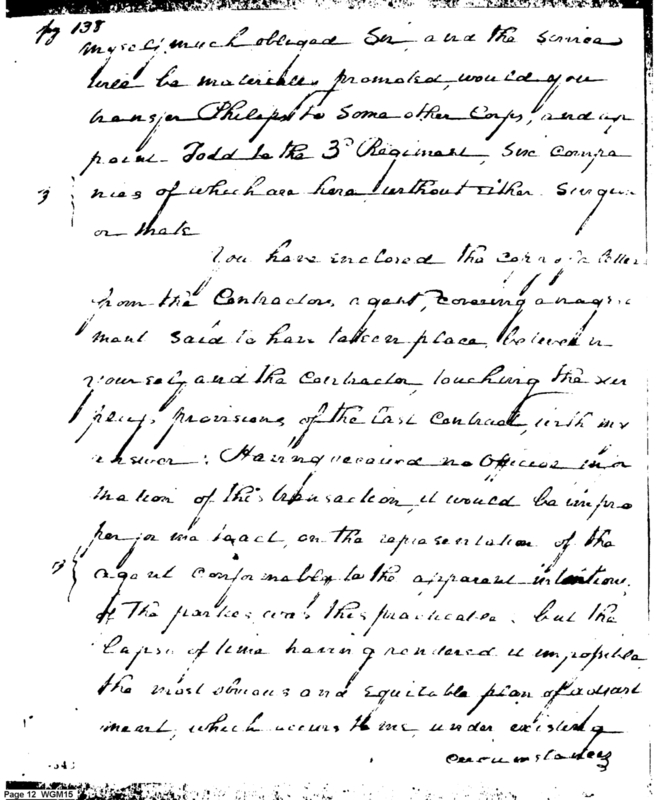 pg 138
myself much obliged Sir, and the service
will be materially promoted, would you
transfer Philips to Some other Corps, and ap
point Todd to the 3d Regiment, Six compa
3 nies of which are here without either Surgeon
or Mate
You have inclosed the copy of a letter
from the Contractors agent, covering an agree
ment said to have taken place between
yourself and the Contractor, touching the sur
plus provisions of the last Contract, with my
answer: Having received no Official infor
mation of this transaction, it would be impro
per for me to act, on the representation of the
3 agent conformably to the apparent intentions,
of The parties, was this practicable. but the
lapse of time having rendered it impossible
the most obvious and equitable plan of adjust
ment, which occurs to me, under existing
circumstances
Page 12 WGM15